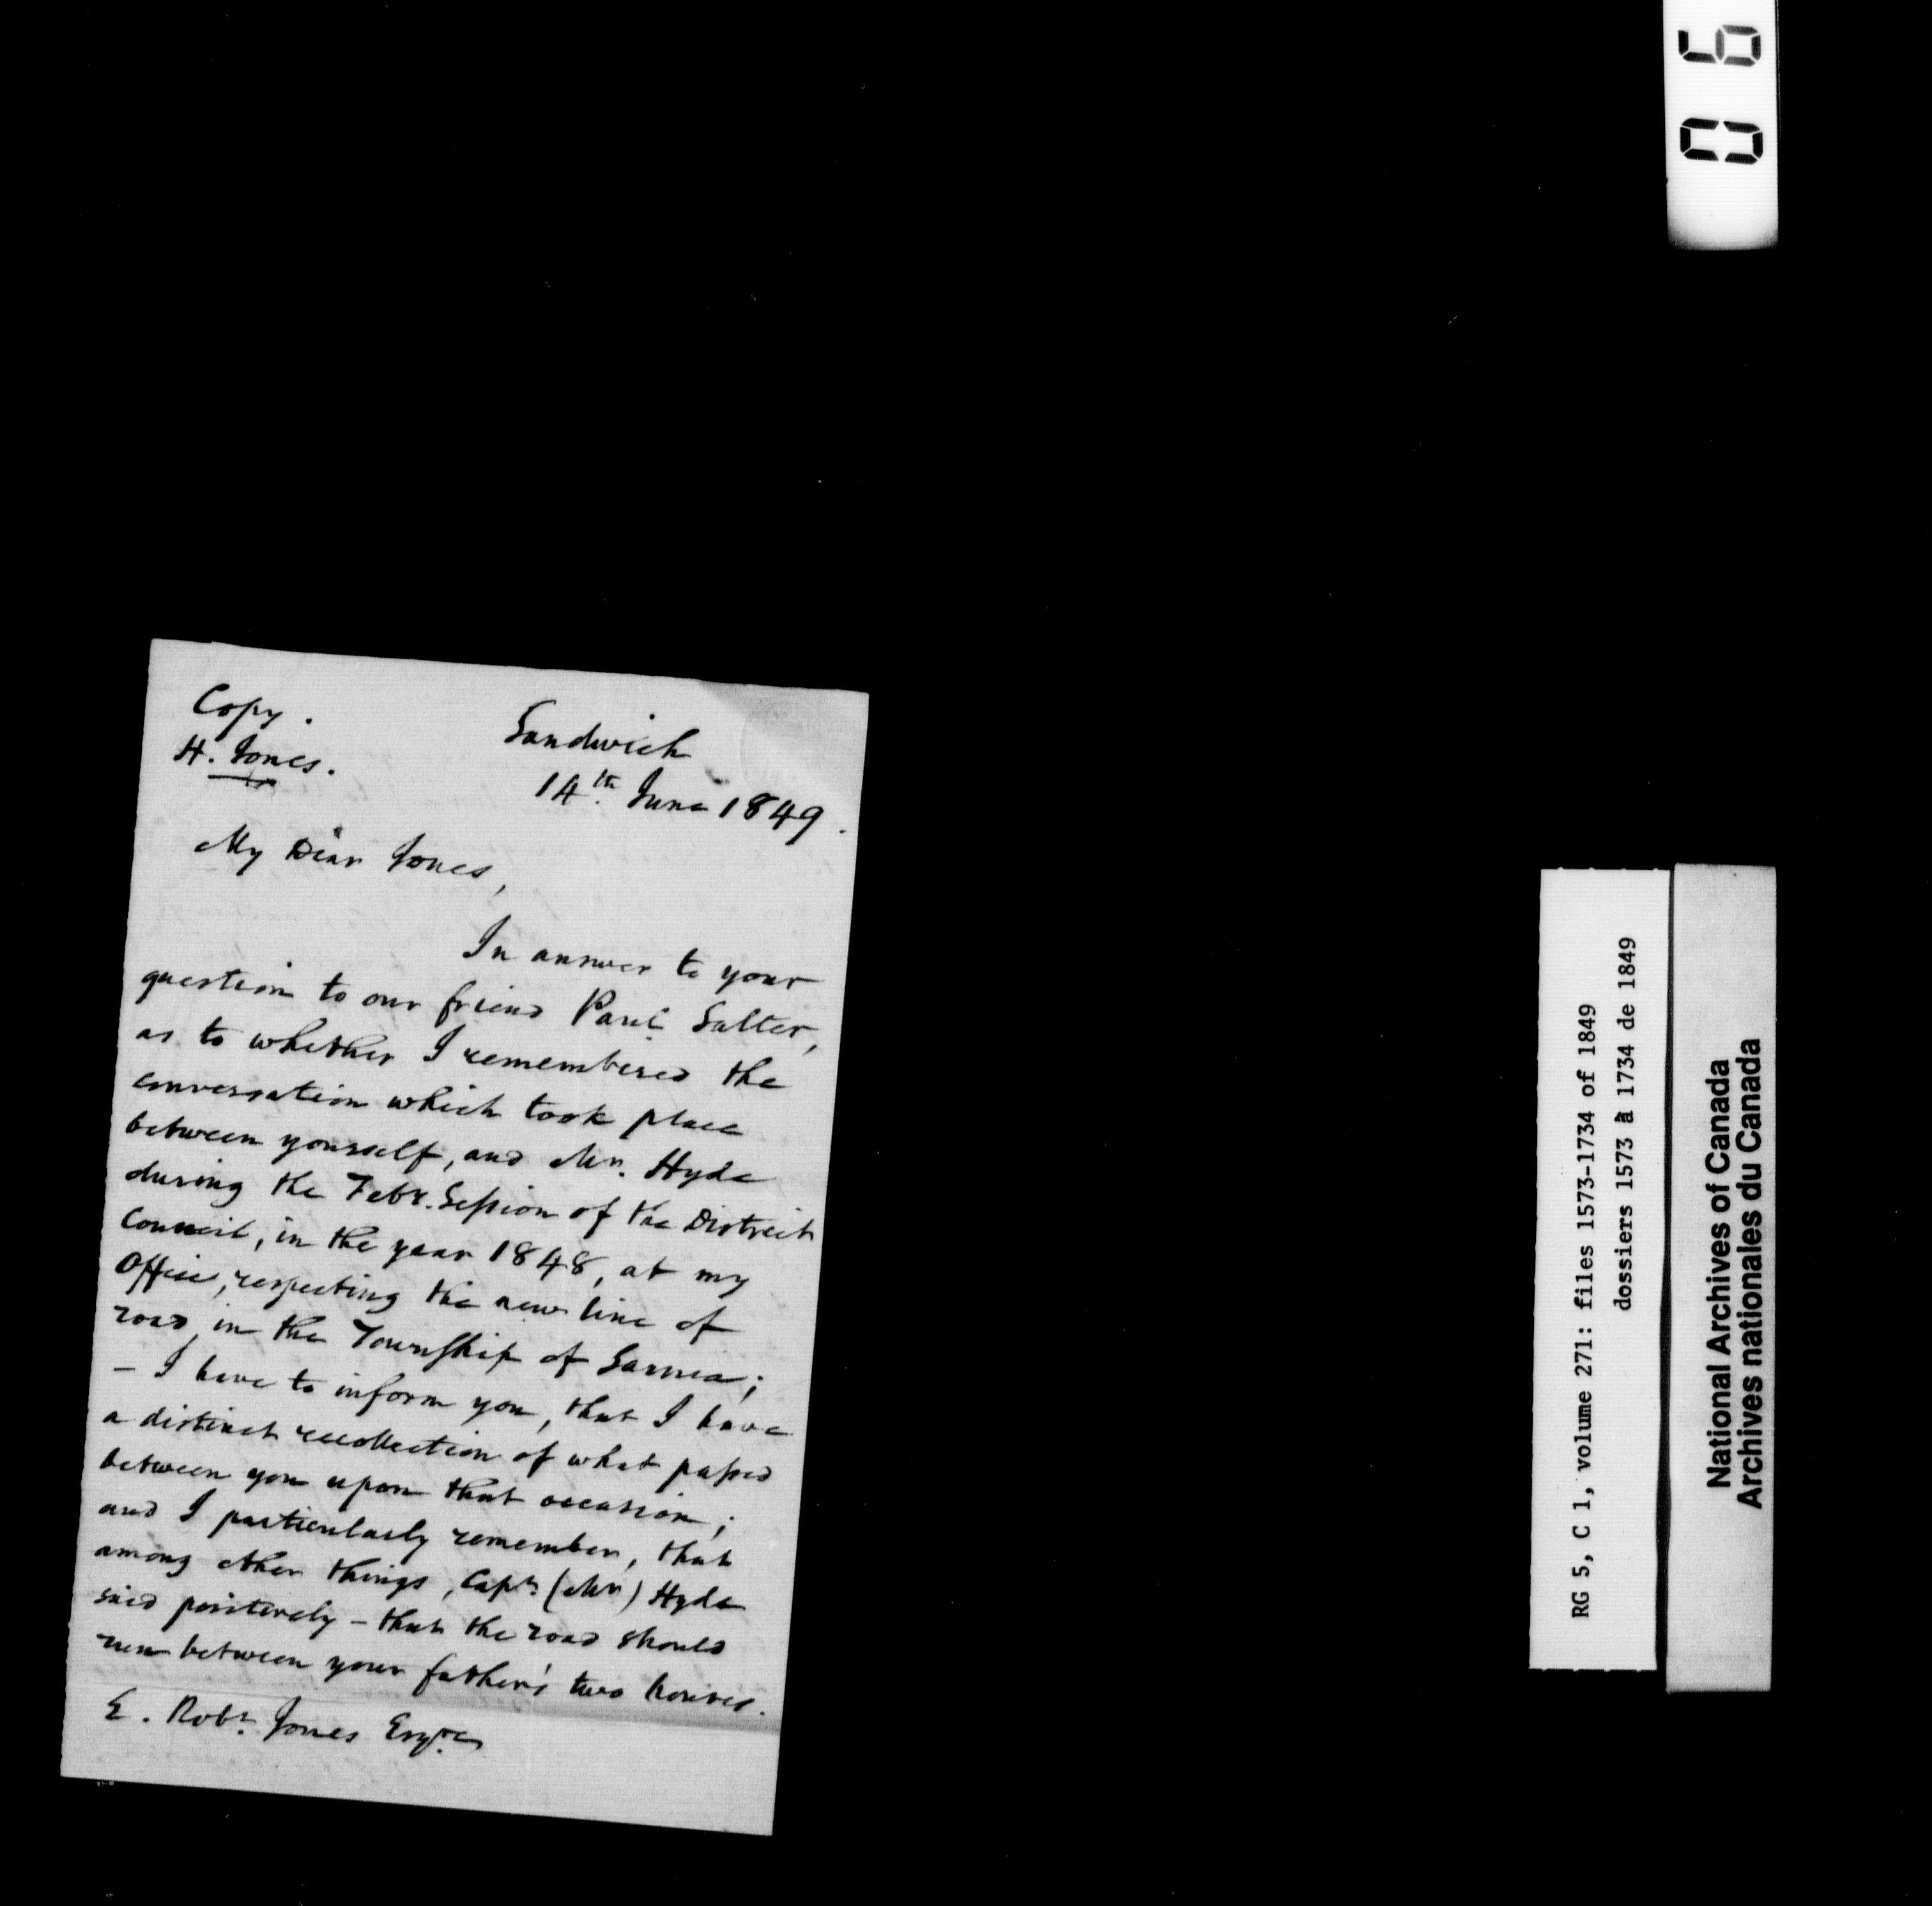 Copy.
H. Jones.
Sandwich
14th June 1849.
My Dear Jones,
In answer to your
question to our friend Paul Salter,
as to whether I remembered the
conversation which took place
between yourself, and Mr. Hyde
during the Febr. Session of the District
Council, in the year 1848, at my
Office, respecting the new line of
road, in the Township of Sarnia;
- I have to inform you, that I have
a distinct recollection of what passed
between you upon that occasion;
and I particularly remember, that
among other things, Capt. (Mr) Hyde
said positively - that the road should
run between your father's two houses.
E. Robt. Jones Esqre
06
RG 5, C 1, volume 271: files 1573-1734 of 1849
dossiers 1573 à 1734 de 1849
National Archives of Canada
Archives nationales du Canada